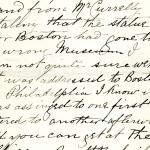 and from McCurelly
that the statue
Boston had gone to
wrong Museum I
am not quite sure we
was addressed to Bost
Philadelphia I know i
was assigned to one first
to another afterw
you can get at the